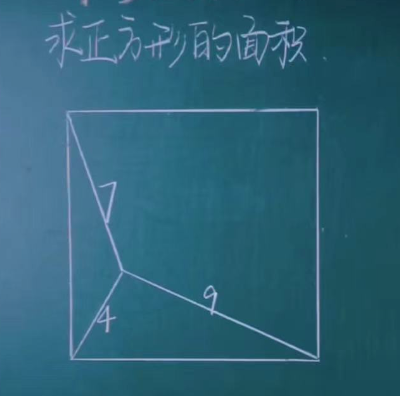 求正方形的面积.
7
9
4